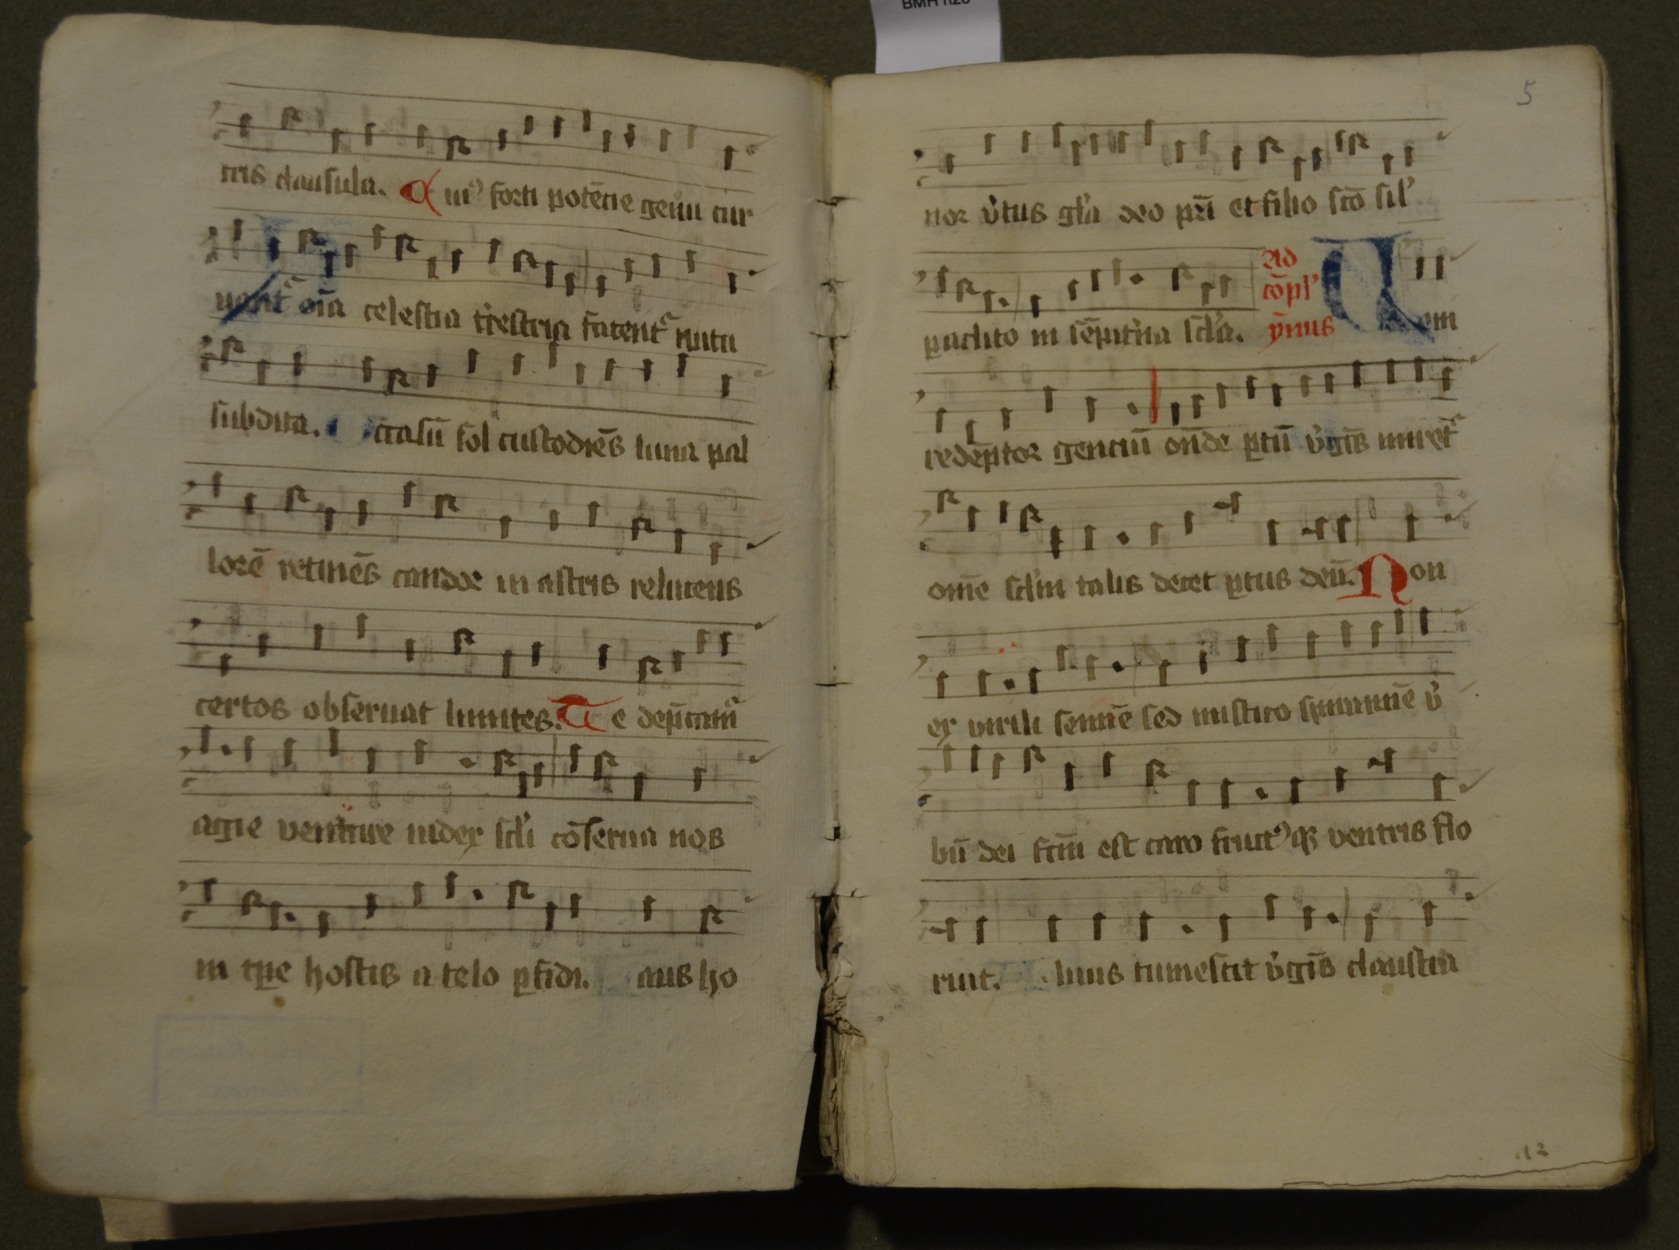 tris clausula. Cui⁹ forti potēcie genu cur
vant᷑ oīa celestia t̓restria fatent᷑ nutu
subdita. ccasū sol custodiēs luna pal
lorē retinēs candor in astris relucens
certos obseruat limites. Te dep̄cam᷑
agie venture iudex scl̓i cōserua nos
in tp̄e hostis a telo ꝑfidi. aus ho
5
nor v̓tus gl̓a deo pr̄i et filio scō sil̓
ꝑaclito in sēpit̓na scl̓a. Ad cōpl̓ ym̄us Uem
redēptor genciū on̄de ꝑtū v̓gīs miret᷑
om̄e scl̓m talis decet ꝑtus deū. Non
ex virili semīe sed mistico spiramīe v̓
bū dei fcm̄ est caro fruct⁹qꝫ ventris flo
ruit. luus tumescit v̓gīs claustra
12